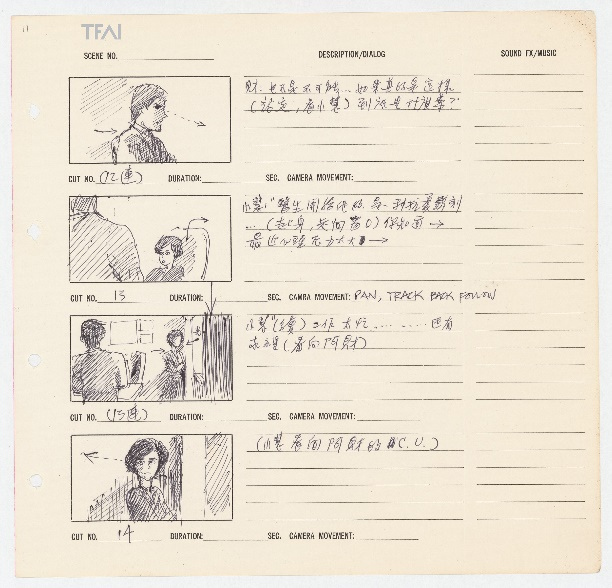 11
TFAI
SCENE NO.
DESCRIPTION/DIALOG
SOUND FX/MUSIC
財: 也不是不可能... 如果真的是這樣
(, 看小慧) 到底是什麼藥?
CUT NO. (12連) DURATION: SEC. CAMERA MOVEMENT:
小慧: "醫生開給他的是一種抗憂鬱劑
... (起身, 走向窗口) 你知道 →
最近心理壓力太大 →
CUT NO. 13 DURATION: SEC. CAMRA MOVEMENT: PAN, TRACK BACK FOLLOW
小慧" (續) 工作太忙 ... ... 還有
(看向阿財)
CUT NO. (13連) DURATION: SEC. CAMERA MOVEMENT:
(小慧看向阿財的 C.U.)
CUT NO. 14 DURATION: SEC. CAMERA MOVEMENT: